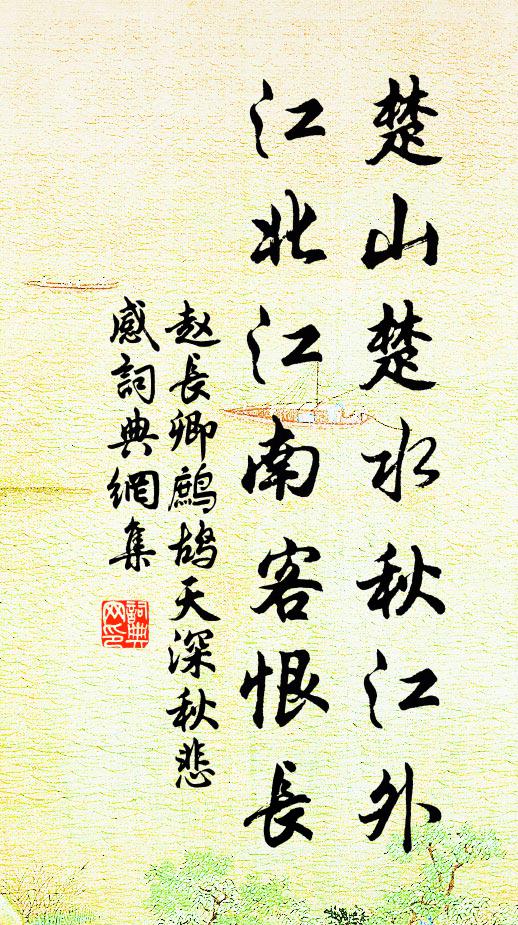 楚山楚水秋江外
江北江南客恨長
赵長卿鷓鴣天深秋悲
感詞典網集
詞典
网印